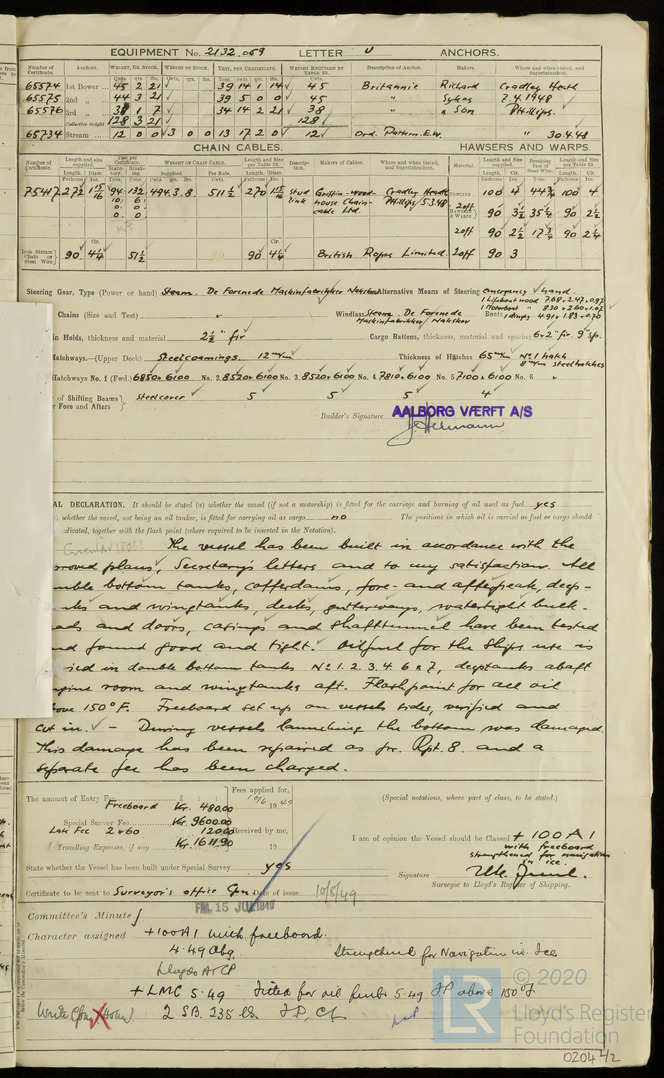 EQUIPMENT No. 2132.059 LETTER U ANCHORS.
Number of Certificate. Anchors. WEIGHT, EX. STOCK. WEIGHT OF STOCK. TEST, PER CERTIFICATE. WEIGHT REQUIRED BY TABLE 53. Description of Anchor. Makers. Where and when tested, and Superintendent.
65574 1st Bower 45 2 21 39 14 1 14 45 Britannic Richard Cradley Heath
65575 2nd „ 44 3 21 39 5 0 0 45 " Sykes 7.4.1948
65576 3rd „ 38 1 7 34 14 2 21 38 " & Son Phillips.
Collective weight 128 3 21 128
65734 Stream 12 0 0 3 0 0 13 17 2 0 12 Ord. Pattern.E.W. " 30.4.48
CHAIN CABLES. HAWSERS AND WARPS.
Number of Certificate. Length and size supplied. Test per Certificate. WEIGHT OF CHAIN CABLE. Length and Size per Table 53. Description. Makers of Cables. Where and when tested, and Superintendent. Material. Length and Size supplied. Breaking Test of Steel Wire. Length and Size per Table 53.
75417 272½ 1 15/16 94 132 494.3.8. 511½ 270 1 15/16 Stud link Griffin-Wood- Cradley Heath 100 4 44¾ 100 4
house Chain- Phillips 5.3.48 2off 90 3½ 35¼ 90 2½
cable Ltd. HAWSERS & WARPS
2off 90 2½ 17¾ 90 2¼
Iron Stream Chain or Steel Wire 90 4¼ 51½ 90 4¼ British Ropes Limited. 2off 90 3
Steering Gear, Type (Power or hand) Steam. De Forenede Maskinfabrikker Nakskov Alternative Means of Steering emergency hand.
1 Lifeboat wood 7.68×2.47×0.97
Chains (Size and Test) " Windlass Steam. De Forenede Boats 1 Motorboat " 8.30×2.60×1.07
Maskinfabrikker Nakskov 1 dinghy 4.91×1.83×0.70
in Holds, thickness and material 2½" fir Cargo Battens, thickness and material and spacing 6×2" fir. 9" sp.
Hatchways.—(Upper Deck) Steelcoamings. 12 m/m Thickness of Hatches 65 m/m No 1 hatch
8 m/m steelhatches
Hatchways No. 1 (Fwd.) 6850×6100 No. 2 8520×6100 No. 3 8520×6100 No. 4 7810×6100 No. 5 7100×6100 No. 6 "
of Shifting Beams } steelcover 5 5 5 4
or Fore and Afters }
Builder's Signature AALBORG VÆRFT A/S
AL DECLARATION. It should be stated (a) whether the vessel (if not a motorship) is fitted for the carriage and burning of oil used as fuel yes
) whether the vessel, not being an oil tanker, is fitted for carrying oil as cargo no The positions in which oil is carried as fuel or cargo should
dicated, together with the flash point (where required to be inserted in the Notation).
The vessel has been built in accordance with the
proved plans, Secretary's letters and to my satisfaction. All
uble bottom tanks, cofferdams, fore- and afterpeak, deep-
nks and wingtanks, decks, gutterways, watertight bulk-
ads and doors, casings and shafttunnel have been tested
nd found good and tight. Oilfuel for the ships use is
ried in double bottom tanks No 1. 2. 3. 4. 6 & 7, deeptanks abaft
ngine room and wingtanks aft. Flashpoint for all oil
bove 150°F. Freeboard set up on vessels sides, verified and
cut in. - During vessels launching the bottom was damaged.
This damage has been repaired as pr. Rpt. 8. and a
separate fee has been charged.
The amount of Entry Fee £ : : Fees applied for,
Freeboard Kr. 480.00 10/6 1949
Special Survey Fee Kr. 9600.00
Late Fee 2×60 120.00 Received by me,
Travelling Expenses, if any Kr. 1611.90 19
(Special notations, where part of class, to be stated.)
I am of opinion the Vessel should be Classed +100A1
with freeboard
strengthened for navigation
in ice.
State whether the Vessel has been built under Special Survey yes
Signature
Surveyor to Lloyd's Register of Shipping.
Certificate to be sent to Surveyor's office Cpn Date of issue 10/8/49
FRI. 15 JUL 1949
Committee's Minute
Character assigned +100A1 with freeboard.
4.49 Abg. Strengthened for Navigation in Ice
Lloyds A&CP
+LMC 5.49 Fitted for oil fuel 5.49 FP above 150°F
2 SB. 235 lb FD, CL
© 2020
LR
Lloyd's Register
Foundation
0204 4/2